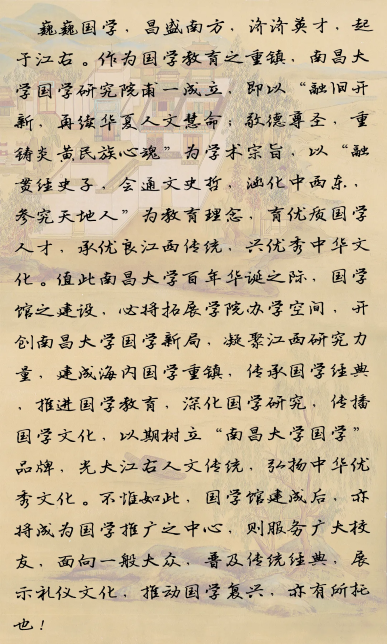 巍巍国学，昌盛南方，济济英才，起
于江右。作为国学教育之重镇，南昌大
学国学研究院甫一成立，即以“融旧开
新，再续华夏人文慧命；敬德尊圣，重
铸炎黄民族心魂”为学术宗旨，以“融
贯经史子，会通文史哲，涵化中西东，
参究天地人”为教育理念，育优质国学
人才，承优良江西传统，兴优秀中华文
化。值此南昌大学百年华诞之际，国学
馆之建设，必将拓展学院办学空间，开
创南昌大学国学新局，凝聚江西研究力
量，建成海内国学重镇，传承国学经典
，推进国学教育，深化国学研究，传播
国学文化，以期树立“南昌大学国学”
品牌，光大江右人文传统，弘扬中华优
秀文化。不惟如此，国学馆建成后，亦
将成为国学推广之中心，则服务广大校
友，面向一般大众，普及传统经典，展
示礼仪文化，推动国学复兴，亦有所托
也！